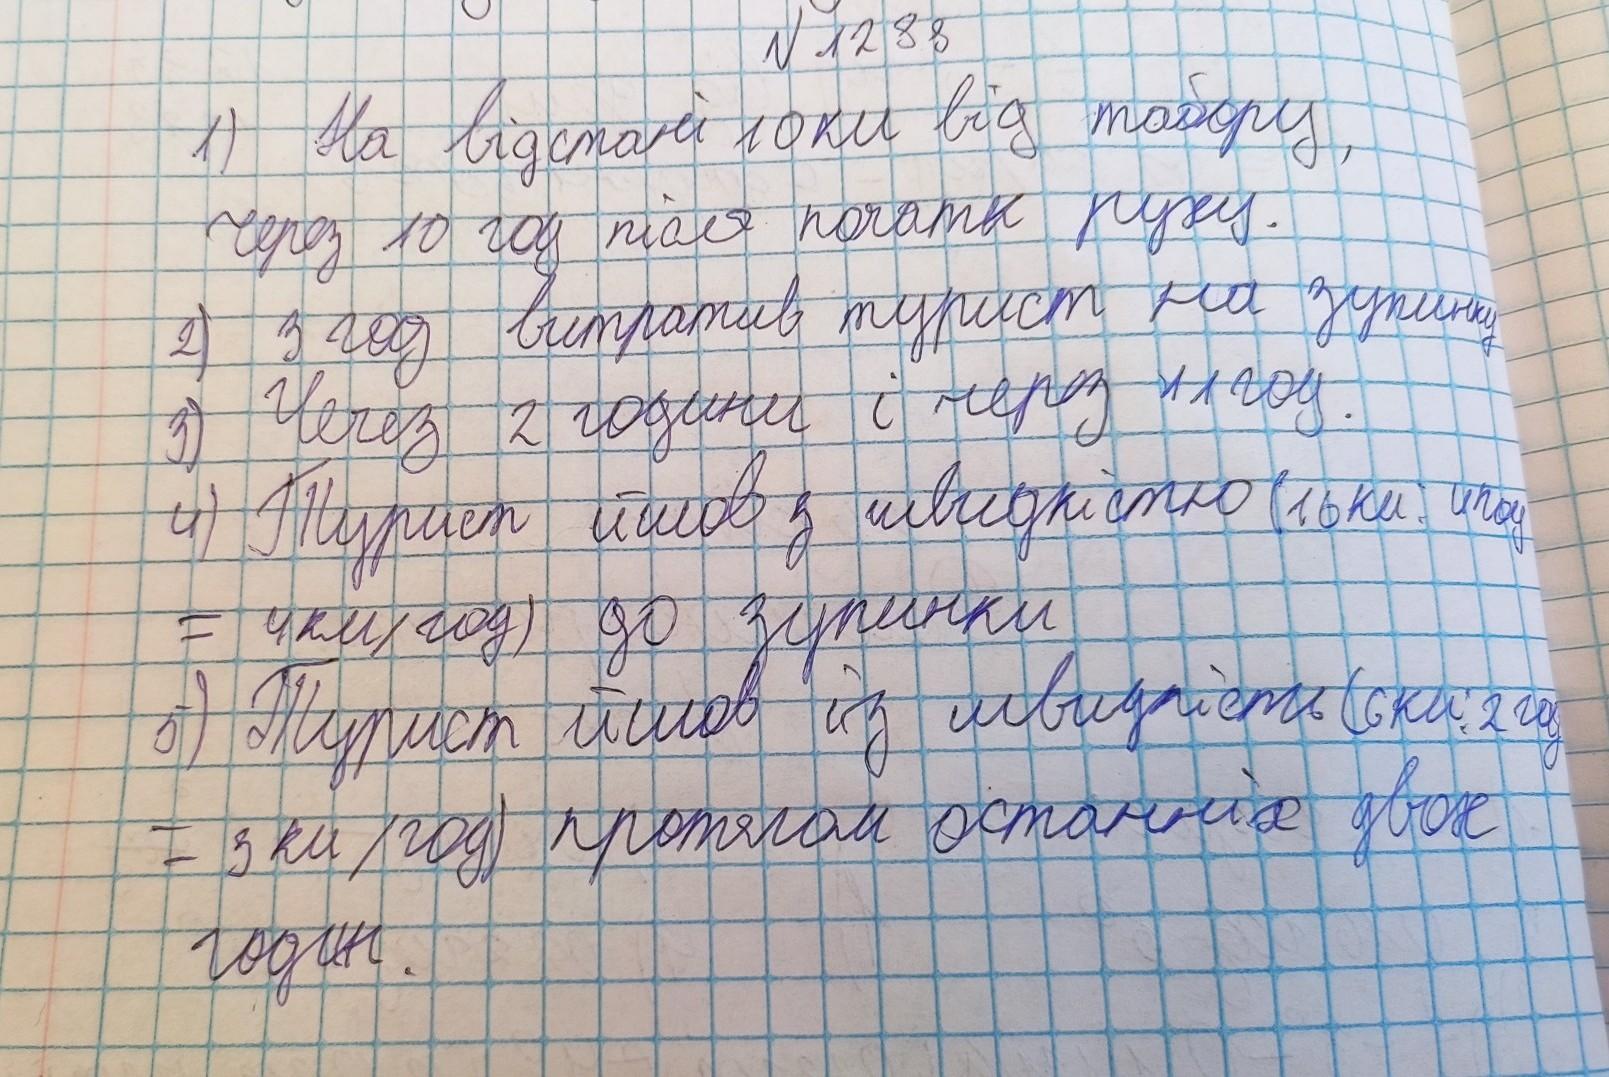 N 1288
1) На відстані 10 км від табору,
через 10 год після початк руху.
2) 3 год витратив турист на зупинку
3) Через 2 години і через 11 год.
4) Турист йшов з швидкістю (16 км : 4 год
= 4 км/год) до зупинки
5) Турист йшов із швидкість (6 км : 2 год
= 3 км/год) протягом останніх двох
годин.